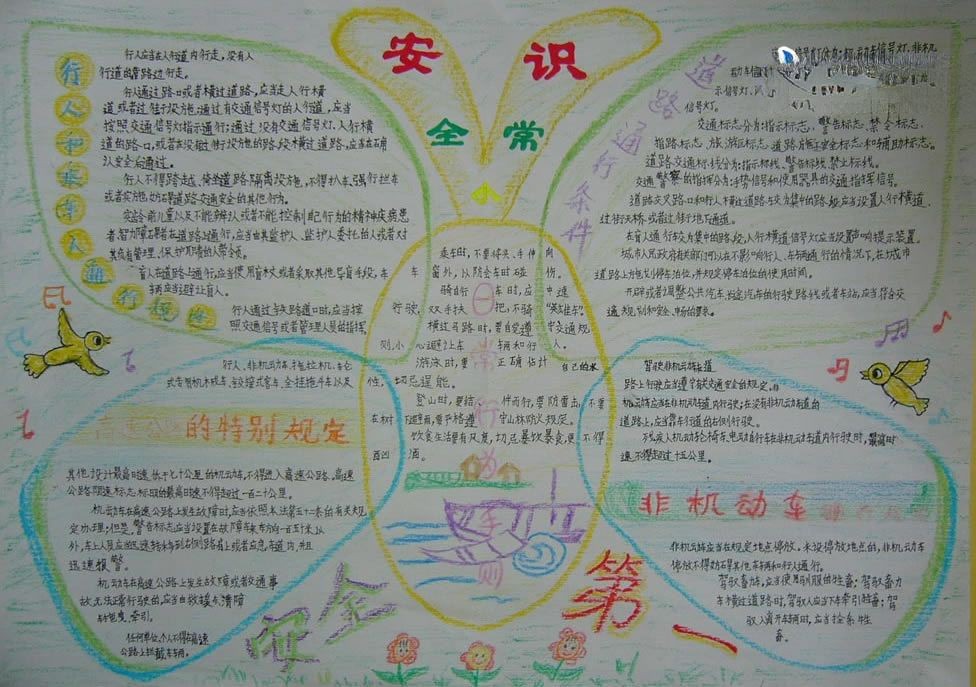 安 识
全 常
小
行人和乘车人通行规定
行人应当在人行道内行走,没有人
行道的靠路边行走。
行人通过路口或者横过道路,应当走人行横
道或者过街设施;通过有交通信号灯的人行道,应当
按照交通信号灯指示通行;通过没有交通信号灯、人行横
道的路口,或者在没有过街设施的路段横过道路,应当在确
认安全后通过。
行人不得跨越、倚坐道路隔离设施,不得扒车、强行拦车
或者实施妨碍道路交通安全的其他行为。
学龄前儿童以及不能辨认或者不能控制自己行为的精神疾病患
者、智力障碍者在道路上通行,应当由其监护人、监护人委托的人或者对
其负有管理、保护职责的人带领。
盲人在道路上通行,应当使用盲杖或者采取其他导盲手段,车
辆应当避让盲人。
行人通过铁路道口时,应当按
照交通信号或者管理人员的指挥
道路通行条件
交通标志分为:指示标志、警告标志、禁令标志、
指路标志、旅游区标志、道路施工安全标志和辅助标志。
道路交通标线分为:指示标线、警告标线、禁止标线。
交通警察的指挥分为:手势信号和使用器具的交通指挥信号。
道路交叉路口和行人横过道路较为集中的路段应当设置人行横道、
过街天桥或者过街地下通道。
在盲人通行较为集中的路段,人行横道信号灯应当设置声响提示装置。
城市人民政府有关部门可以在不影响行人、车辆通行的情况下,在城市
道路上施划停车泊位,并规定停车泊位的使用时间。
开辟或者调整公共汽车、长途汽车的行驶路线或者车站,应当符合交
通规划和安全、畅通的要求。
日常行为手则
乘车时,不要将头、手伸向
窗外,以防会车时碰伤。
登山时,要结伴而行,要防雷击,不要
在树下避雨,要严格遵守山林防火规定。
行人、非机动车、拖拉机、轮式
式专用机械车、铰接式客车、全挂拖斗车以及
的特别规定
其他设计最高时速低于七十公里的机动车,不得进入高速公路。高速
公路限速标志标明的最高时速不得超过一百二十公里。
机动车在高速公路上发生故障时,应当依照本法第五十二条的有关规
定办理;但是,警告标志应当设置在故障车来车方向一百五十米以
外,车上人员应当迅速转移到右侧路肩上或者应急车道内,并且
迅速报警。
机动车在高速公路上发生故障或者交通事
故,无法正常行驶的,应当由救援车、清障
车拖曳、牵引。
任何单位、个人不得在高速
公路上拦截车辆。
驾驶非机动车在道
路上行驶应当遵守有关交通安全的规定。非
机动车应当在非机动车道内行驶;在没有非机动车道的
道路上,应当靠车行道的右侧行驶。
残疾人机动轮椅车、电动自行车在非机动车道内行驶时,最高时
速不得超过十五公里。
非机动车
非机动车应当在规定地点停放。未设停放地点的,非机动车
停放不得妨碍其他车辆和行人通行。
驾驭畜力
车横过道路时,驾驭人应当下车牵引牲畜;驾
驭人离开车辆时,应当拴系牲
畜。
安全第一